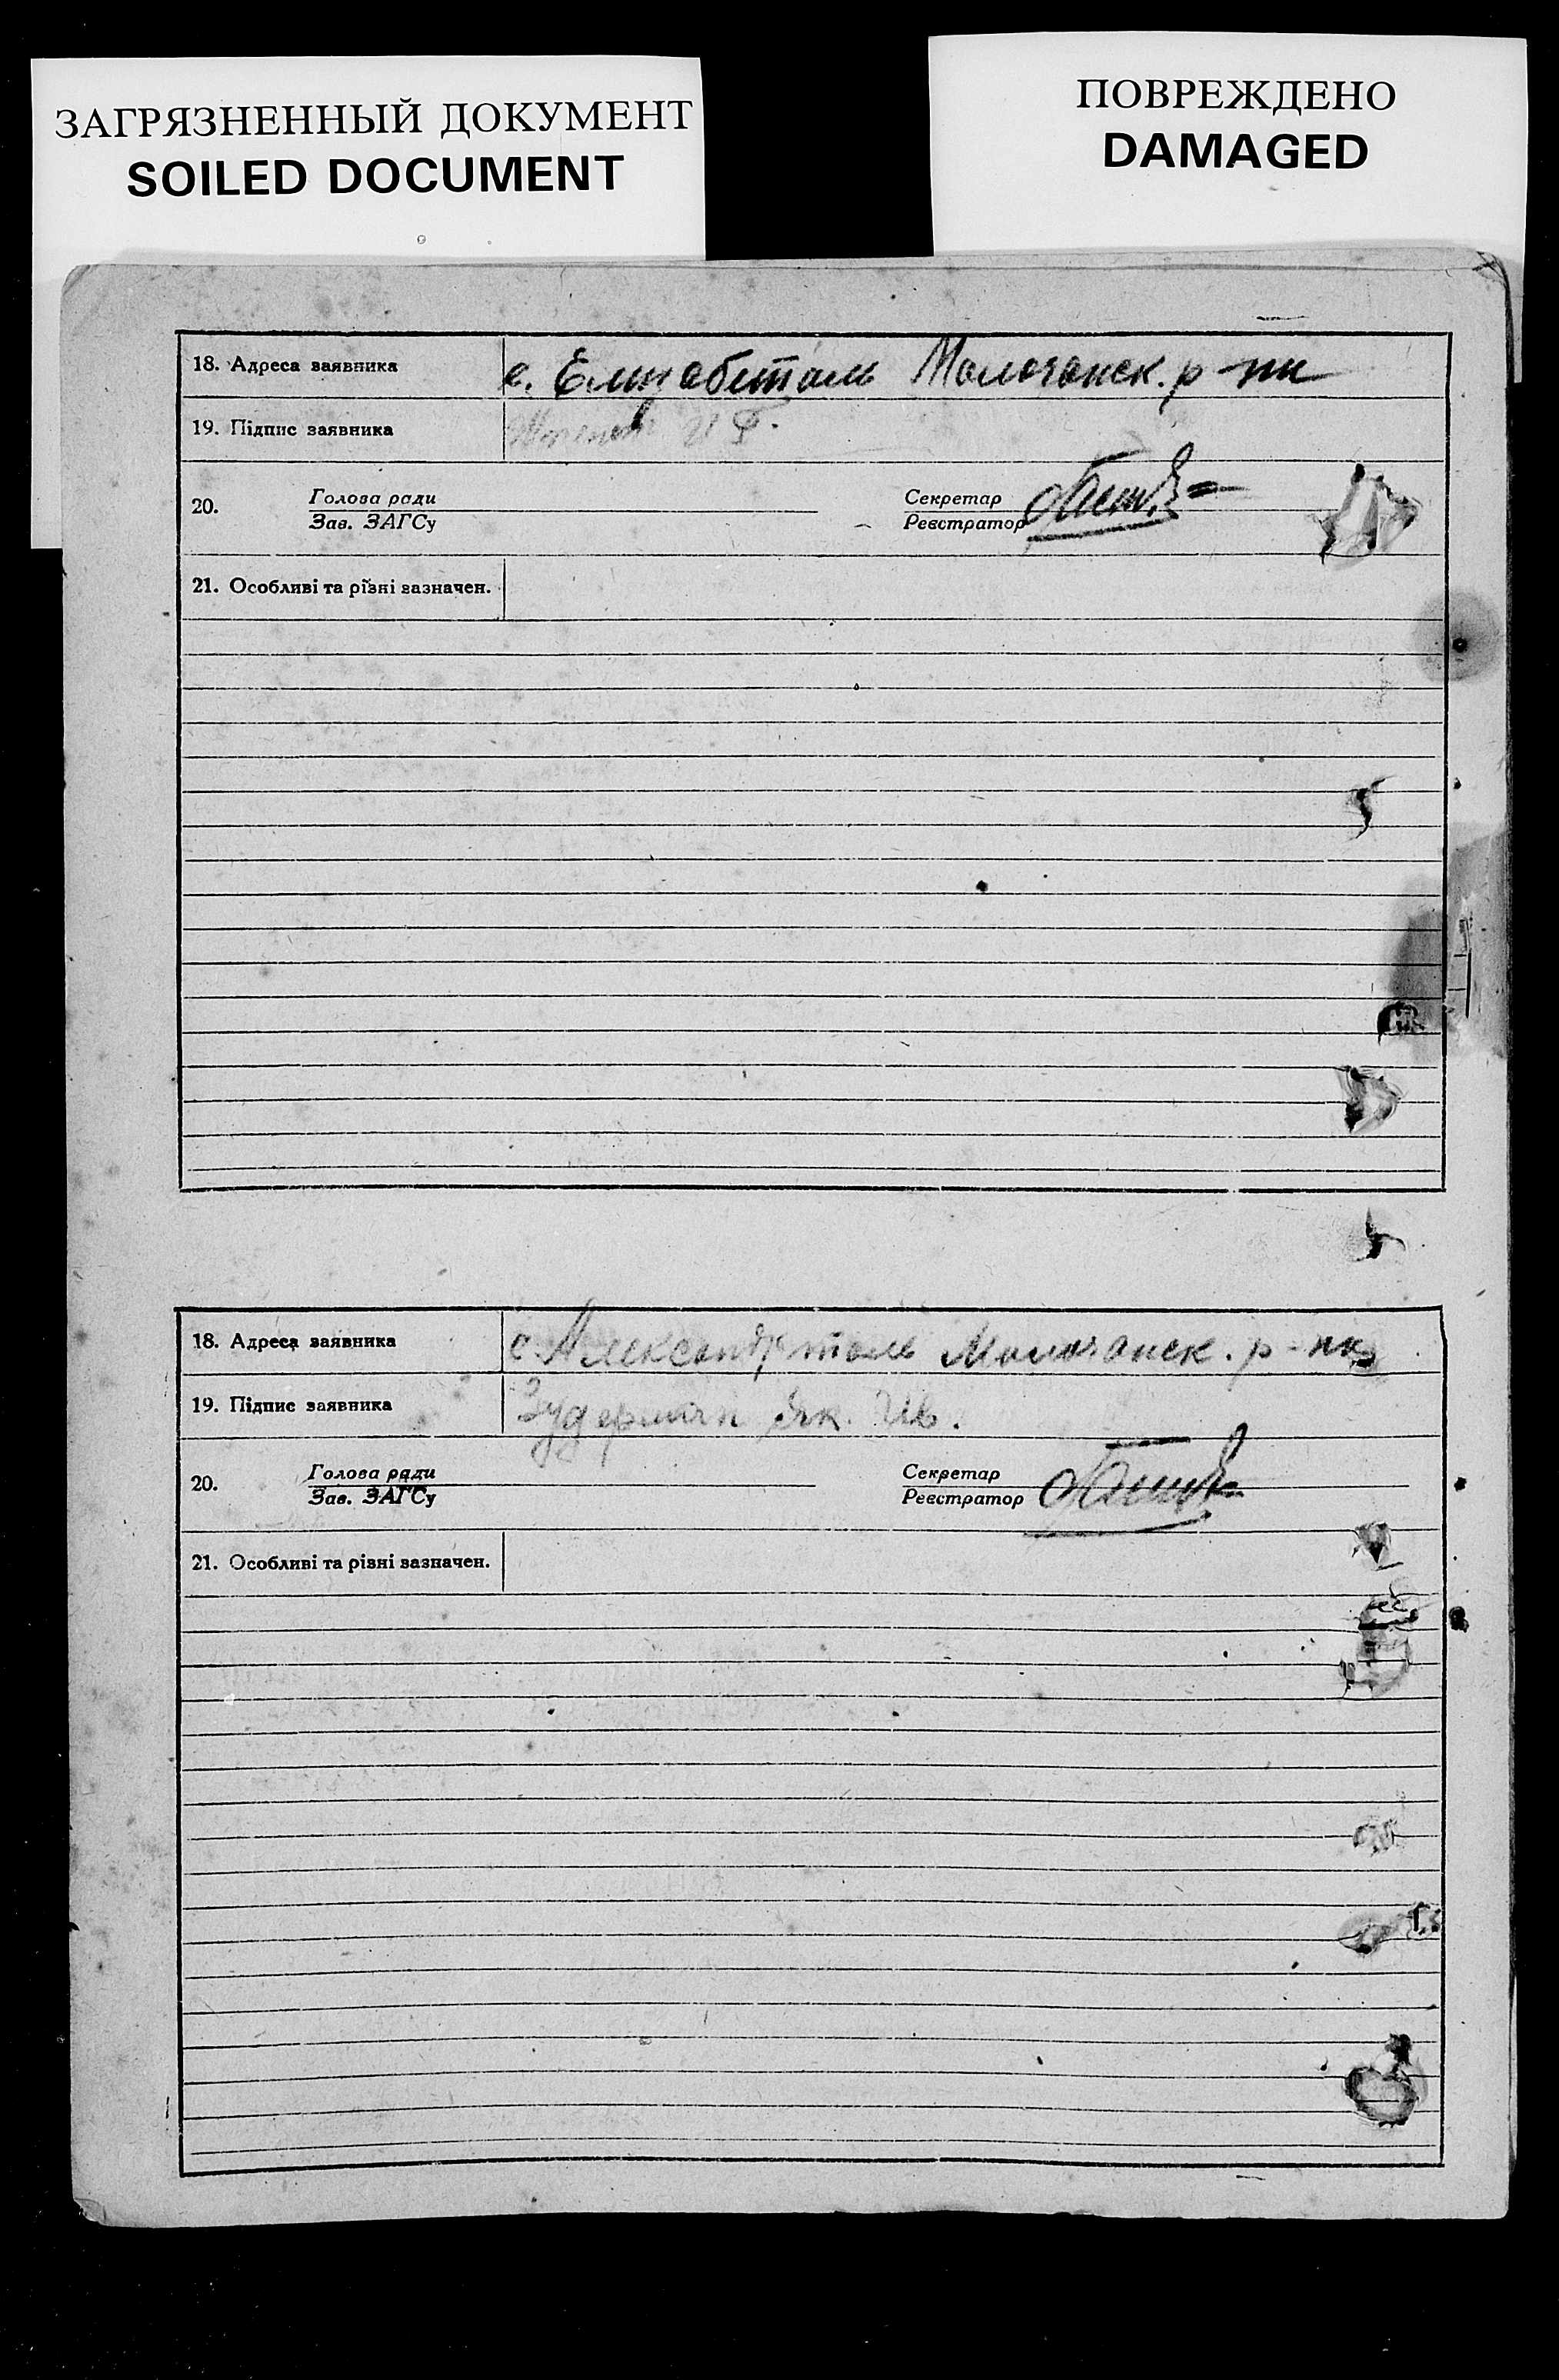 ЗАГРЯЗНЕННЫЙ ДОКУМЕНТ
SOILED DOCUMENT
ПОВРЕЖДЕНО
DAMAGED
18. Адреса заявника с. Елизабеталь Молочанск. р-на
19. Підпис заявника И Ф.
20. Голова ради Секретар
Зав. ЗАГСу Реєстратор
21. Особливі та різні зазначен.
18. Адреса заявника с. Александрталь Молочанск. р-на
19. Підпис заявника Зудерман Як. Ив.
20. Голова ради Секретар
Зав. ЗАГСу Реєстратор
21. Особливі та різні зазначен.